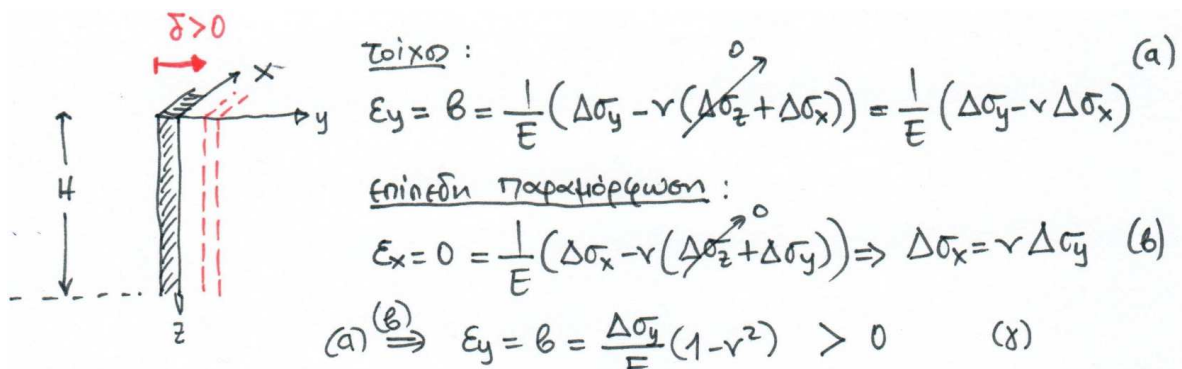 δ>0
x
y
H
z
τοίχος :
εy = β = 1/E (Δσy - ν(Δσz + Δσx)) = 1/E (Δσy - νΔσx) (α)
0
επίπεδη παραμόρφωση :
εx = 0 = 1/E (Δσx - ν(Δσz + Δσy)) ⇒ Δσx = νΔσy (β)
0
(α) (β)⇒ εy = β = Δσy/E (1-ν²) > 0 (γ)